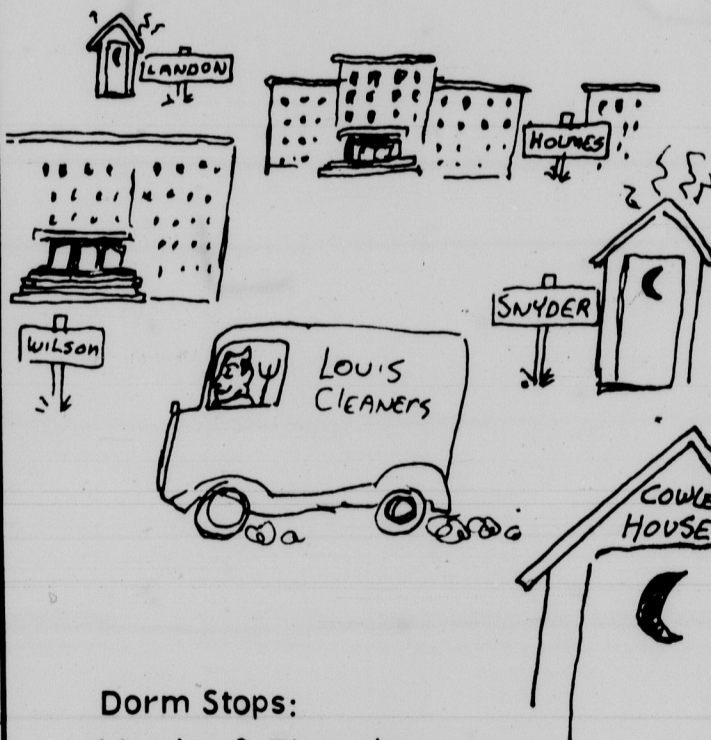 LANDON
HOLMES
SNYDER
WILSON
LOUIS
CLEANERS
HOUSE
Dorm Stops: